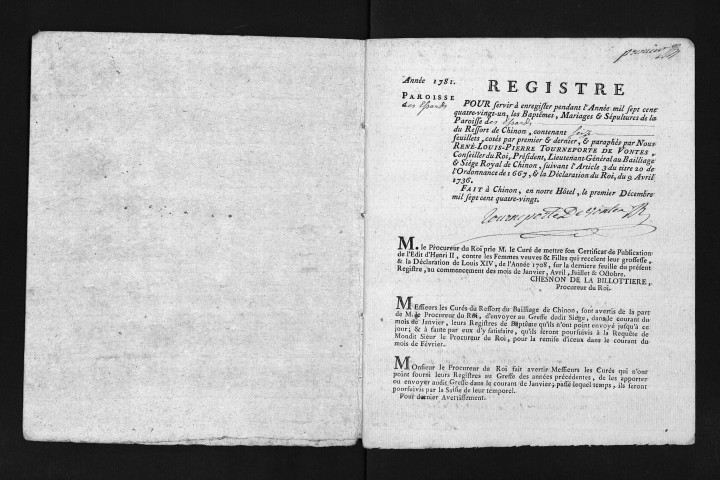 premier
Année 1781.
REGISTRE
PAROISSE
des Essards
POUR servir à enregister pendant l'Année mil sept cent
quatre-vingt-un, les Baptêmes, Mariages & Sépultures de la
Paroisse des Essards
du Ressort de Chinon, contenant seize
feuillets, cotés par premier & dernier, & paraphés par Nous
RENÉ-LOUIS-PIERRE TOURNEPORTE DE VONTES,
Conseiller du Roi, Président, Lieutenant Général au Bailliage
& Siége Royal de Chinon, suivant l'Article 3 du titre 20 de
l'Ordonnance de 1667, & la Déclaration du Roi, du 9 Avril
1736.
FAIT à Chinon, en notre Hôtel, le premier Décembre
mil sept cent quatre-vingt.
Tourneporte De Vontes
M. le Procureur du Roi prie M. le Curé de mettre son Certificat de Publication
de l'Edit d'Henri II, contre les Femmes veuves & Filles qui recelent leur grossesse,
& la Déclaration de Louis XIV, de l'Année 1708, sur la derniere feuille du présent
Registre, au commencement des mois de Janvier, Avril, Juillet & Octobre.
CHESNON DE LA BILLOTTIERE,
Procureur du Roi.
Messieurs les Curés du Ressort du Bailliage de Chinon, sont avertis de la part
de M. le Procureur du Roi, d'envoyer au Greffe dudit Siége, dans le courant du
mois de Janvier, leurs Registres de Baptême qu'ils n'ont point envoyé jusqu'à ce
jour; & à faute par eux d'y satisfaire, qu'ils seront poursuivis à la Requête de
Mondit Sieur le Procureur du Roi, pour la remise d'iceux dans le courant du
mois de Février.
Monsieur le Procureur du Roi fait avertir Messieurs les Curés qui n'ont
point fourni leurs Registres au Greffe des années précédentes, de les apporter
ou envoyer audit Greffe dans le courant de Janvier; passé lequel temps, ils seront
poursuivis par la Saisie de leur temporel.
Pour dernier Avertissement.